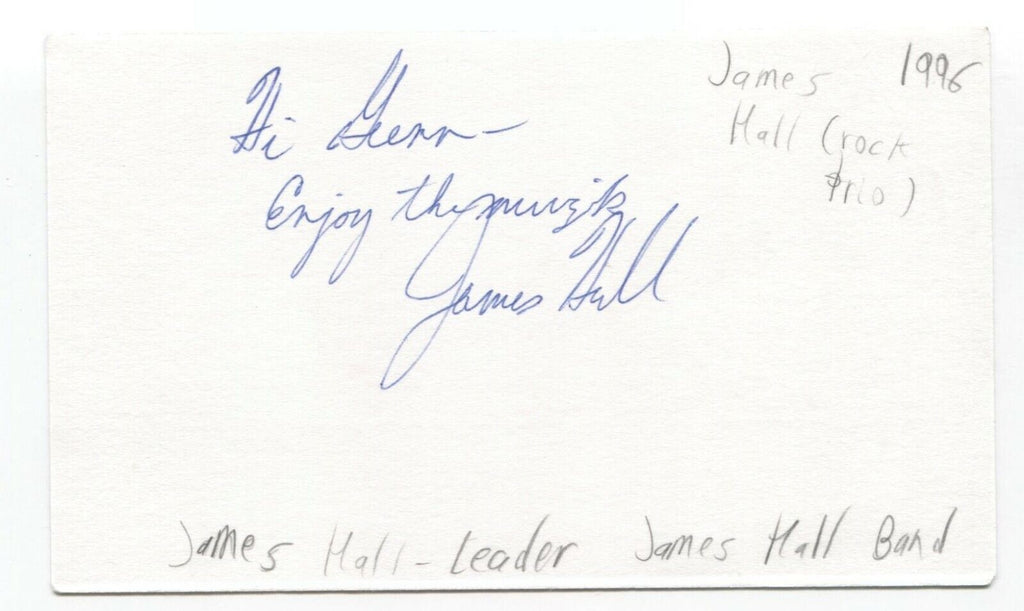 James 1996
Hall (rock
trio)
Hi Glenn -
Enjoy the muzik
James Hall
James Hall - Leader James Hall Band